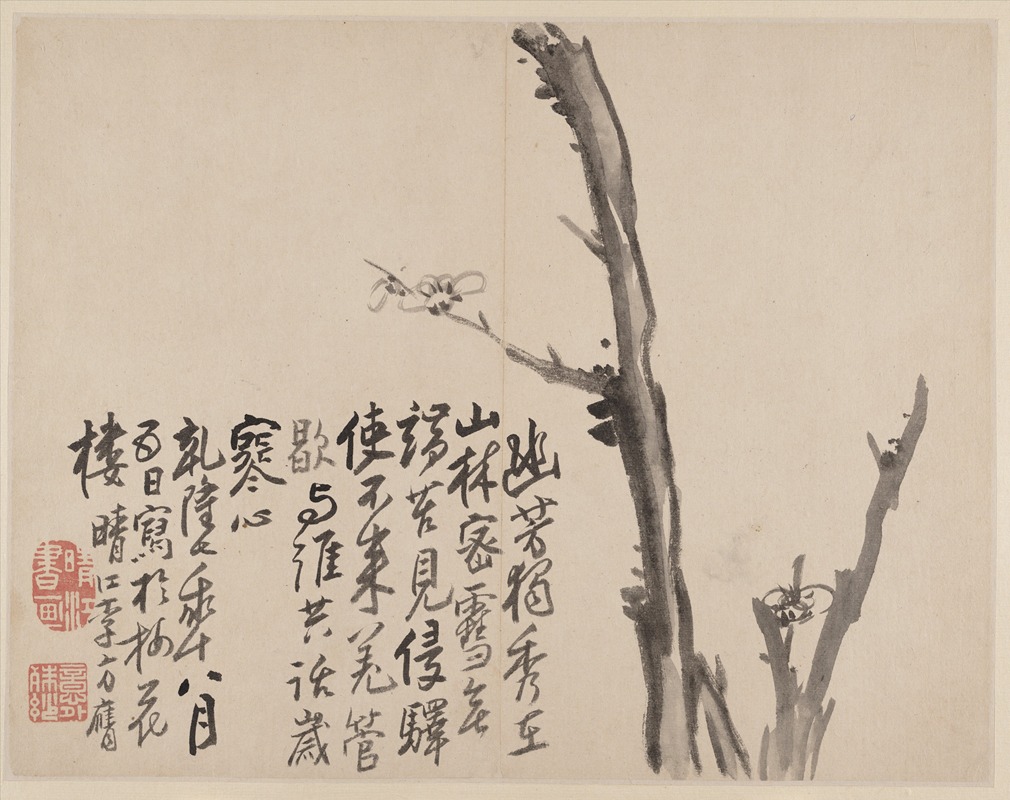 幽芳獨秀在
山林密雪無
端苦見侵驛
使不来羌管
歇与誰共話歲
寒心
乾隆七秊八月
五日寫於梅花
樓 晴江李方膺
晴江書画